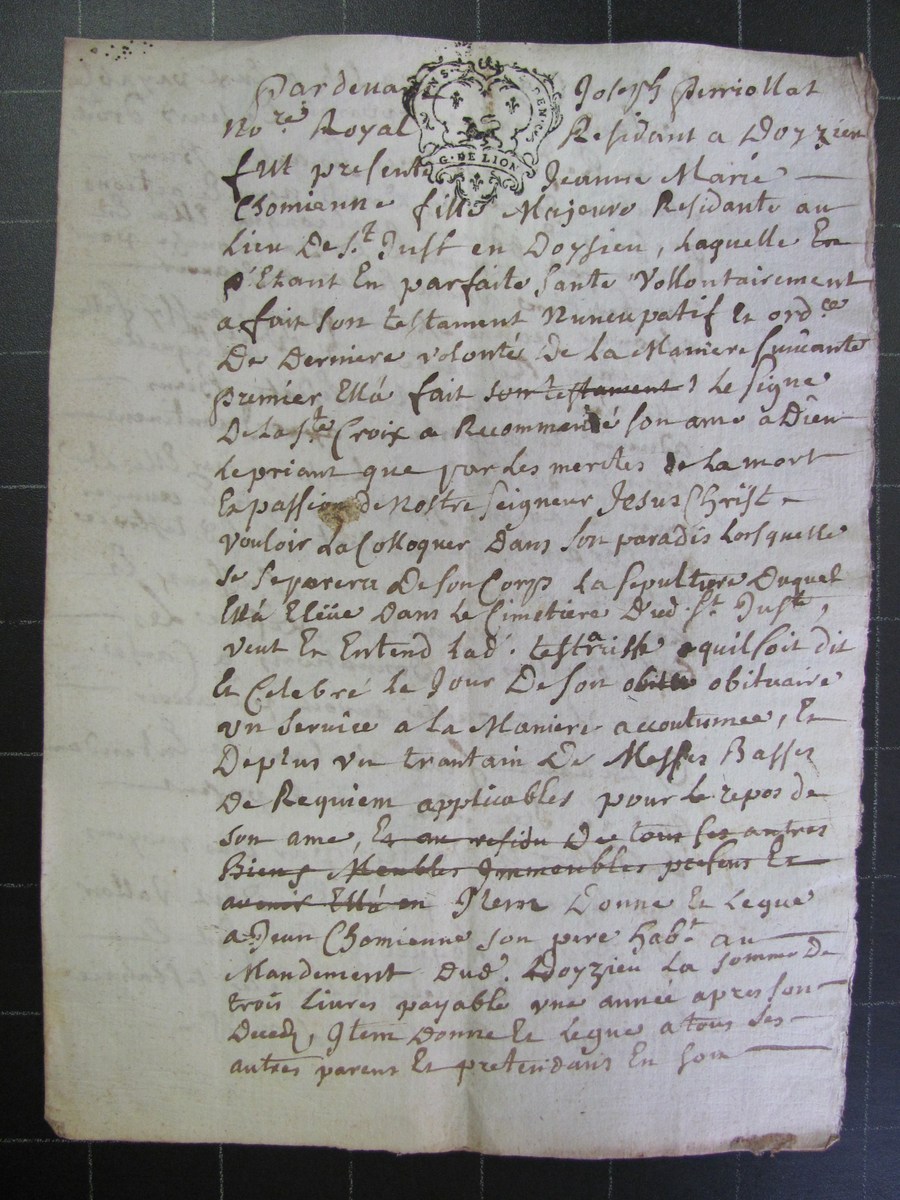 Pardevant Joseph Perriollat
No.re Royal Residant a Doyzieu
fut presente Jeanne Marie
Chomienne fille Majeure Residante au
Lieu De St. Just en Doysieu, Laquelle
d'Etant En parfaite sante Vollontairement
a fait son testament Nuncupatif Et ord.ce
De Derniere volonté De La Maniere Suivante
Premier Ella fait son testament Le signe
De La Ste Croix a Recommandé son ame a Dieu
Le priant que par Les merites de La mort
Et passion de Nostre Seigneur Jesus Christ
vouloir La Colloquer Dans son paradis Lorsquelle
se separera De son Corps La sepulture Duquel
Ella Elüe Dans Le Cimetiere Dud. St. Juste,
veut Et Entend Lad. testatrisse quil soit dit
Et Celebré Le Jour De son obituaire
un service a La Maniere accoutumée, Et
De plus un trantain De Messes Basses
De Requiem applicables pour Le repos de
son ame, Et au residu De tous ses autres
Biens Meubles Immeubles presens Et
avenir Ella en Item Donne Et Legue
a Jean Chomienne son pere hab.t au
Mandement Dud. Doyzieu La somme De
trois Livres payable une année apres son
Deced, Item Donne Et Legue a tous ses
autres parens Et pretendans En son
G. DE LION